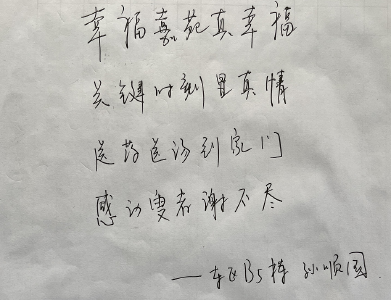 幸福嘉苑真幸福
关键时刻显真情
送药送汤到家门
感动叟者谢不尽
——东区B5栋 孙顺国